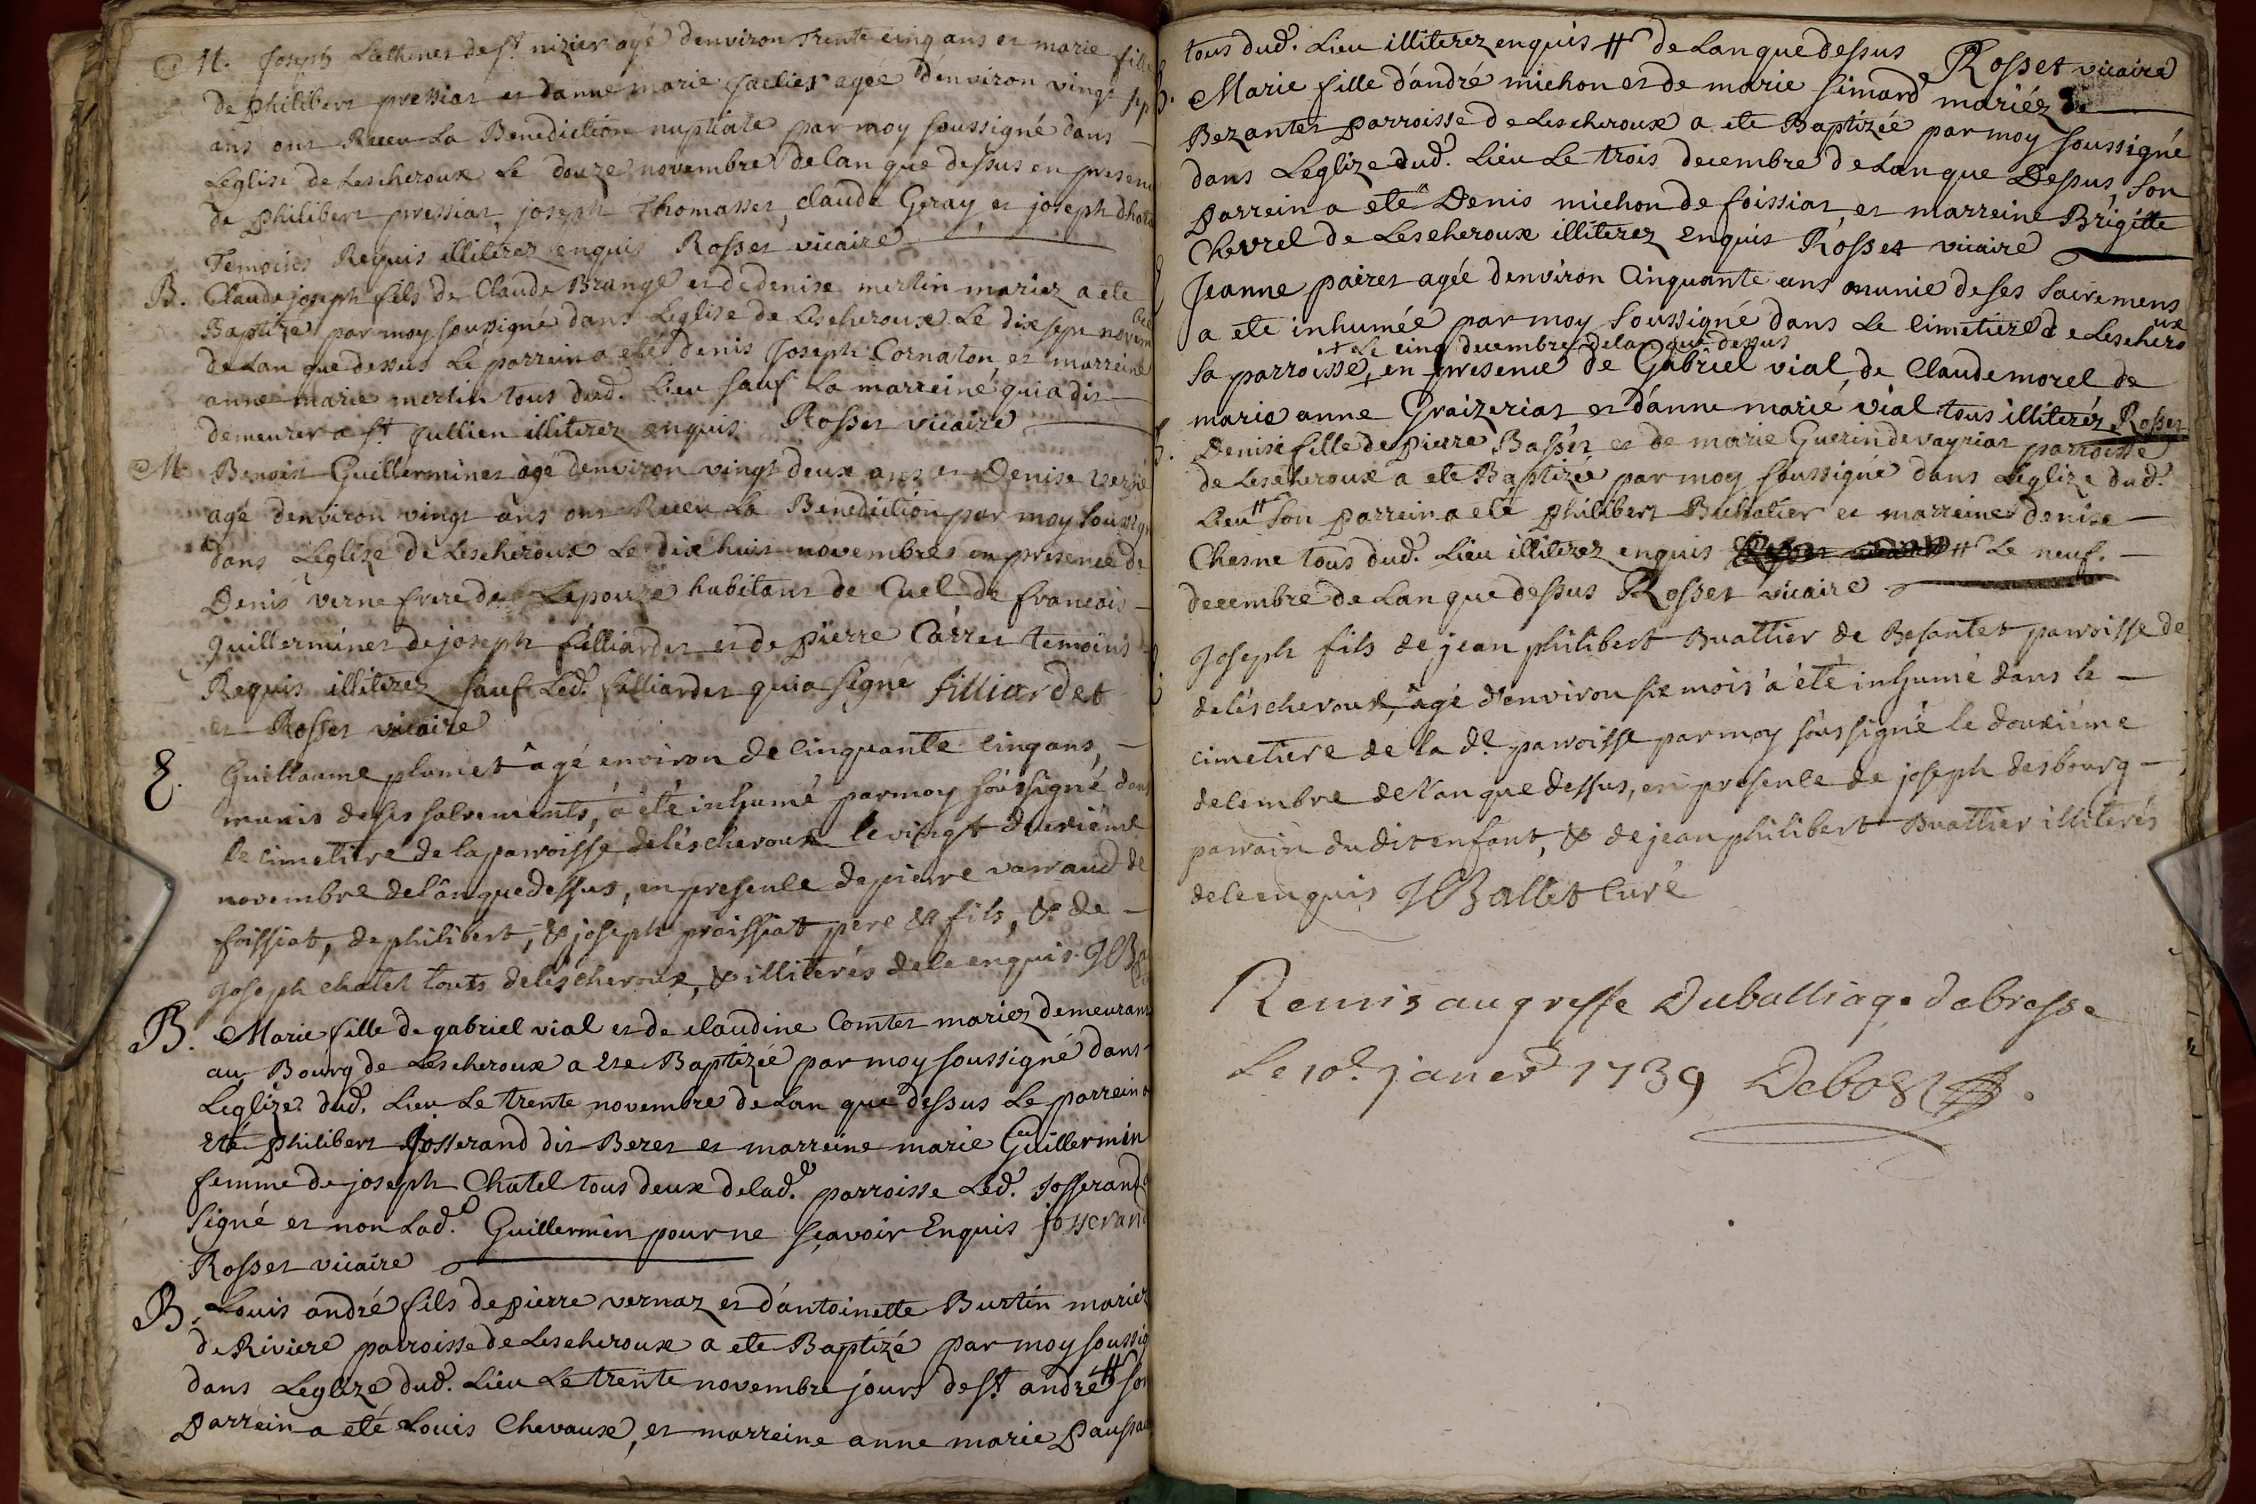 M. Joseph de st. nizier agé denviron trente cinq ans et marie fille
de philibert pressiat et danne marie agée denviron vingt sept
ans ont Receu La Benediction nuptiale par moy soussigné dans
Leglise de Lescheroux Le douze novembre de lan que dessus en presence
de philibert pressiat, joseph Thomasset, claude Geray et joseph
Temoins Requis illiterez enquis Rosset vicaire
B. Claude joseph fils de Claude Brangé et de denise merlin mariez a ete
Baptizé par moy soussigné dans Leglise de Lescheroux Le dix sept novembre
de Lan que dessus Le parrein a eté denis Joseph Cornaton, et marreine
anne marie merlin tous dud. Lieu sauf La marreine qui a dit
demeurer a st. Jullien illiterez enquis Rosset vicaire
M. Benoist Guillerminet agé denviron vingt deux ans et Denise verne
agé denviron vingt ans ont Receu La Benediction par moy soussigné
dans Leglise de Lescheroux Le dixhuit novembres en presence de
Denis verne frere de Lepouze habitant de Cuel de francois
Guillerminet de joseph filliardet et de pierre Carret temoins
Requis illiterez sauf Led. filliardet qui a signé filliardet
et Rosset vicaire
E. Guillaume plumet âgé environ de cinquante cinq ans,
munis de ses sacrements, a été inhumé par moy soussigné dans
le cimetière de la parroisse de léscheroux le vingt deuxième
novembre de l'ân que dessus, en presence de pierre varraud de
foissiat, de philibert, & joseph proissiat pere & fils, & de
joseph chatel touts de léscheroux, & illitérés de ce enquis. JB
B. Marie fille de gabriel vial et de claudine Comtet mariez demeurant
au Bourg de Lescheroux a ete Baptizée par moy soussigné dans
Leglize dud. Lieu Le trente novembre de Lan que dessus Le parrein a
eté philibert Josserand dit Beret et marreine marie Guillermin
femme de joseph Chatel tous deux de lad. parroisse Led. Josserand
signé et non Lad. Guillermin pour ne sçavoir Enquis josserand
Rosset vicaire
B. Louis andré fils de pierre vernaz et d'antoinette Burtin mariez
de Riviere parroisse de Lescheroux a ete Baptizé par moy soussig
dans Leglize dud. Lieu Le trente novembre jours de st. andré # son
Parrein a eté Louis Chevaux, et marreine anne marie
tous dud. Lieu illiterez enquis # de Lan que dessus Rosset vicaire
Marie fille d'andré michon et de marie simard mariéz de
Bezantet parroisse de Lescheroux a ete Baptizée par moy soussigné
dans Leglize dud. Lieu Le trois decembre de Lan que Dessus, Son
Parrein a eté Denis michon de foissiat et marreine Brigitte
Chevrel de Lescheroux illiterez Enquis Rosset vicaire
Jeanne pairet agée denviron Cinquante ans munie de ses Sacremens
a ete inhumée par moy soussigné dans Le cimetiere de Lescheroux
+ Le cinq decembre de lan que dessus
sa parroisse, + en presence de Gabriel vial, de Claude morel de
marie anne Graizeriat et d'anne marie vial tous illiteréz Rosset
Denise fille de pierre Basset et de marie Guerin de vayriat parroisse
de Lescheroux a ete Baptizée par moy soussigné dans Leglize dud.
Lieu # Son parrein a eté philibert Buhatier et marreine denise
Chesne tous dud. Lieu illiterez enquis # Le neuf.
decembre de Lan que dessus Rosset vicaire
Joseph fils de jean philibert Buattier de Besantet parroisse de
de léscheroux, âgé d'environ six mois a été inhumé dans le
cimetiere de la de. parroisse par moy soussigné le douxième
decembre de l'an que dessus, en presence de joseph desbourg
parrain du dit enfant, & de jean philibert Buattier illitérés
de ce enquis JBallet Curé
Remis au greffe Du balliage de bresse
Le 10e. janer 1739 Debost